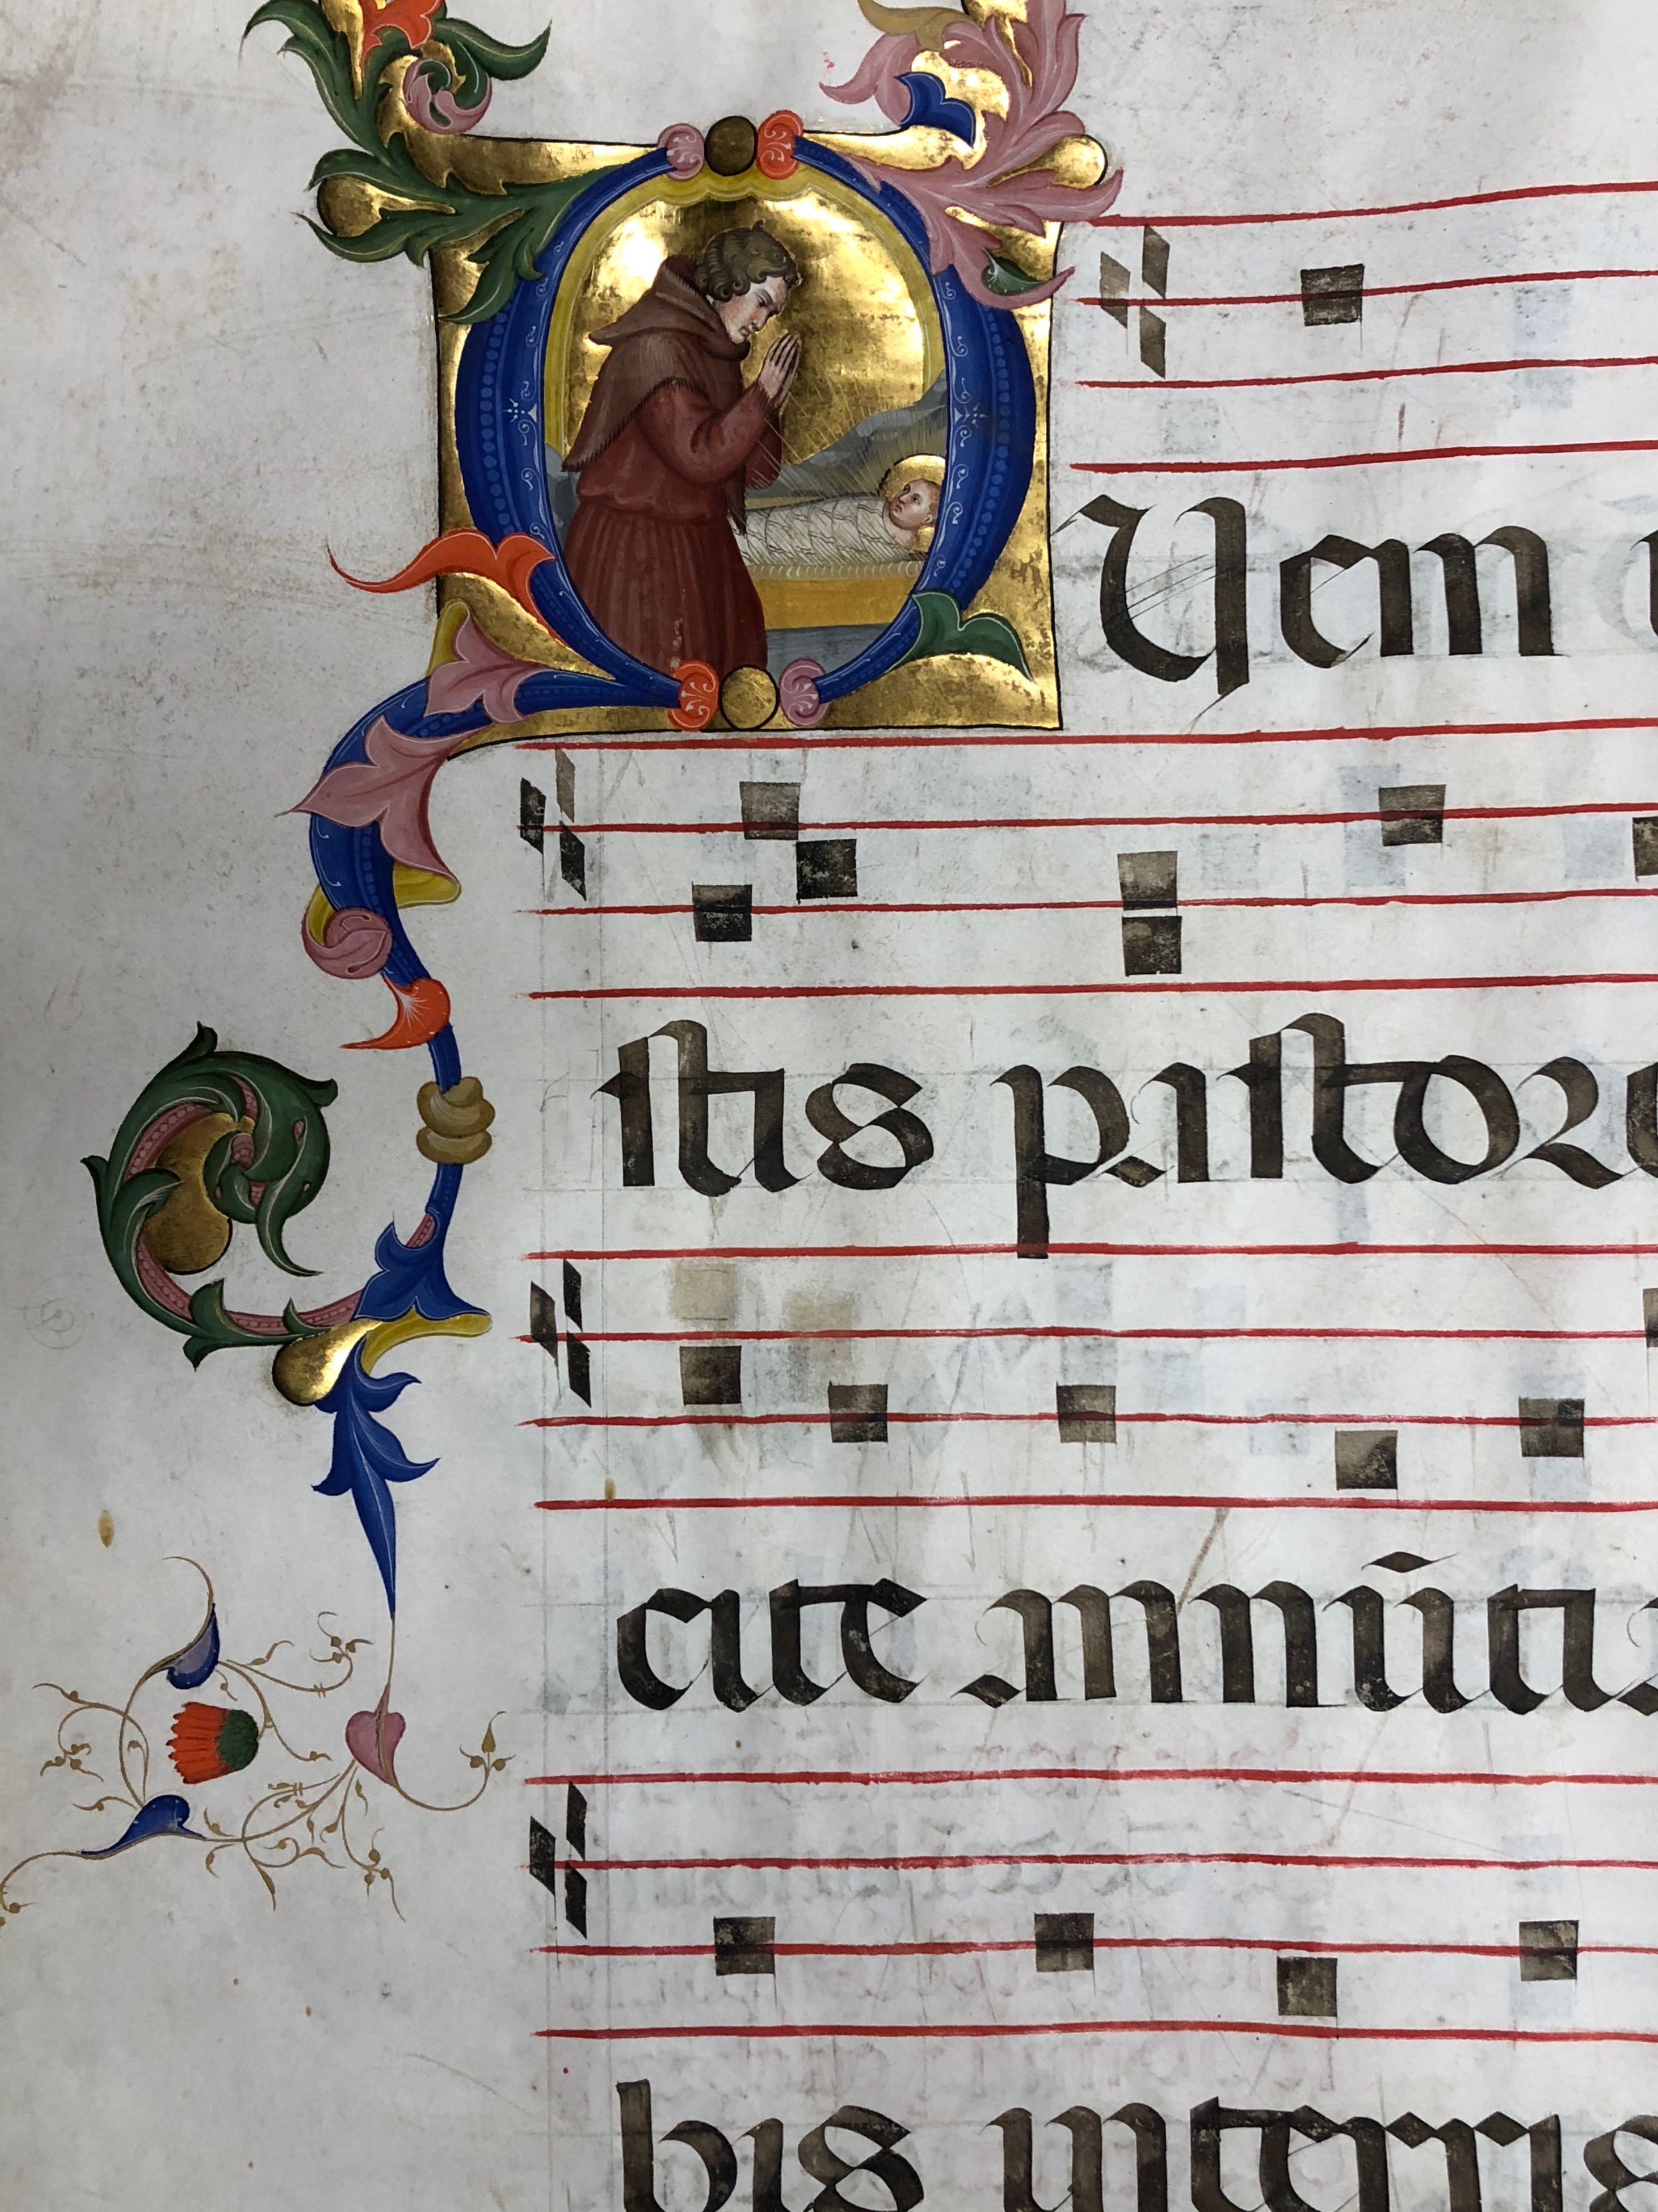 QUem
stis pastor
cite annūti
bis interris